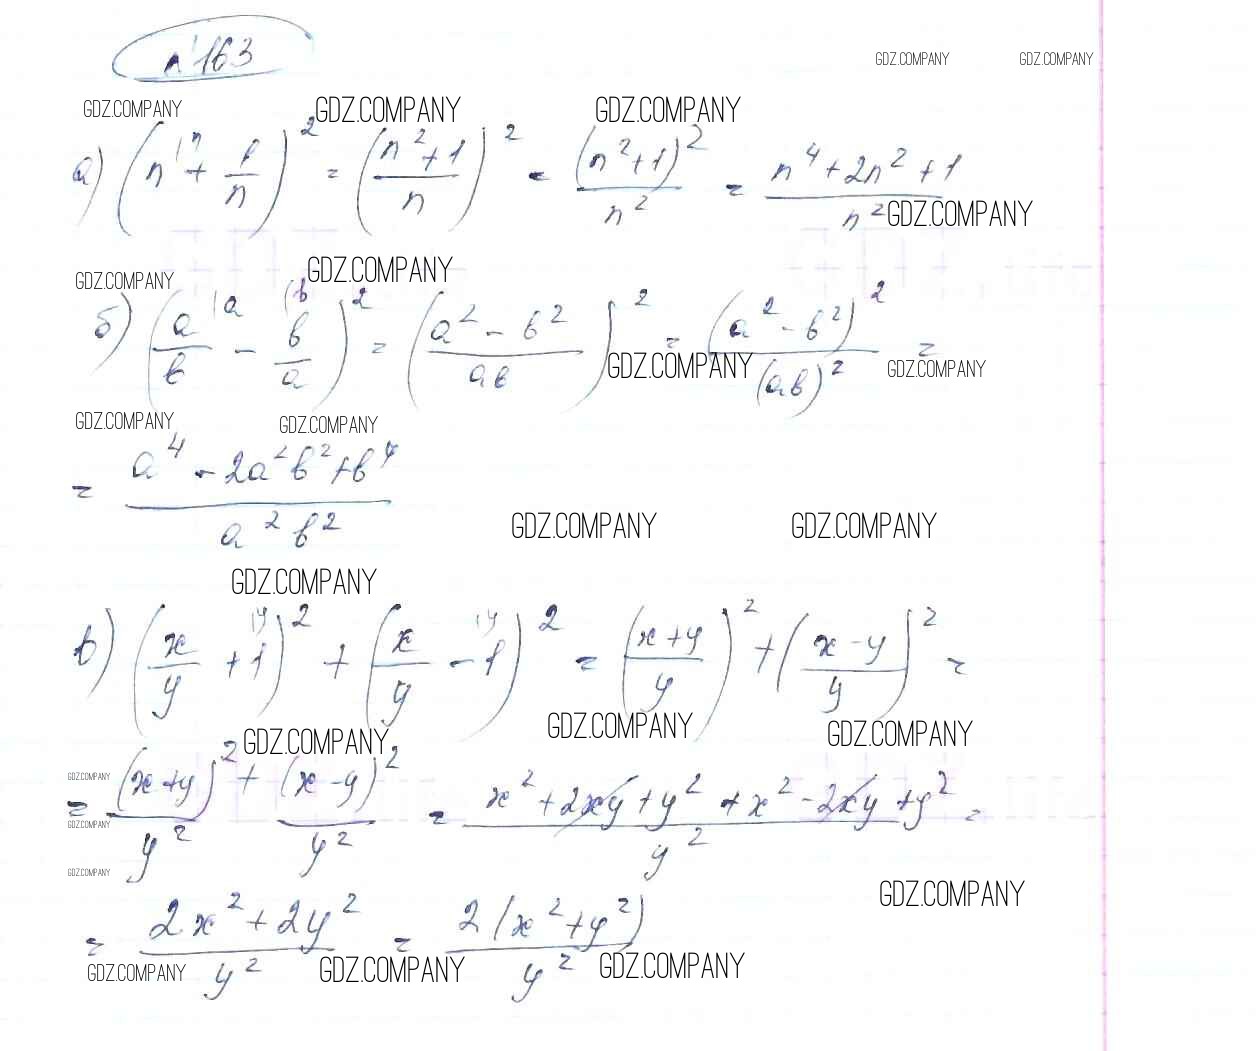 №163
GDZ.COMPANY GDZ.COMPANY
GDZ.COMPANY GDZ.COMPANY GDZ.COMPANY
а) (n^{\n} + 1/n)^2 = ((n^2+1)/n)^2 = (n^2+1)^2/n^2 = (n^4+2n^2+1)/n^2
GDZ.COMPANY
GDZ.COMPANY GDZ.COMPANY
б) (a/b^{\a} - b/a^{\b})^2 = ((a^2-b^2)/ab)^2 = (a^2-b^2)^2/(ab)^2 =
GDZ.COMPANY GDZ.COMPANY
GDZ.COMPANY GDZ.COMPANY
= (a^4-2a^2b^2+b^4)/a^2b^2
GDZ.COMPANY GDZ.COMPANY
GDZ.COMPANY
в) (x/y + 1^{\y})^2 + (x/y - 1^{\y})^2 = ((x+y)/y)^2 + ((x-y)/y)^2 =
GDZ.COMPANY GDZ.COMPANY GDZ.COMPANY
GDZ.COMPANY
= (x+y)^2/y^2 + (x-y)^2/y^2 = (x^2+2xy+y^2+x^2-2xy+y^2)/y^2 =
GDZ.COMPANY
GDZ.COMPANY
GDZ.COMPANY
= (2x^2+2y^2)/y^2 = 2(x^2+y^2)/y^2
GDZ.COMPANY GDZ.COMPANY GDZ.COMPANY